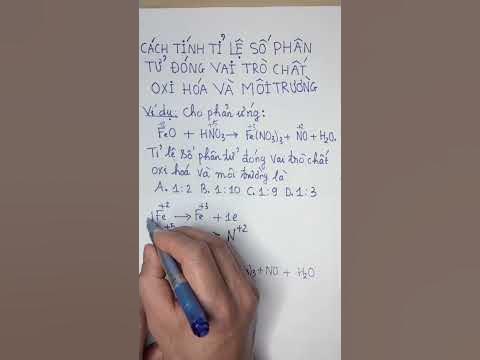 CÁCH TÍNH TỈ LỆ SỐ PHÂN
TỬ ĐÓNG VAI TRÒ CHẤT
OXI HÓA VÀ MÔI TRƯỜNG
Ví dụ. Cho phản ứng:
+2 +5 +3 +2
FeO + HNO₃ → Fe(NO₃)₃ + NO + H₂O.
Tỉ lệ số phân tử đóng vai trò chất
oxi hoá và môi trường là
A. 1:2 B. 1:10 C. 1:9 D. 1:3
+2 +3
Fe → Fe + 1e
+5
N⁺²
)₃ + NO + H₂O